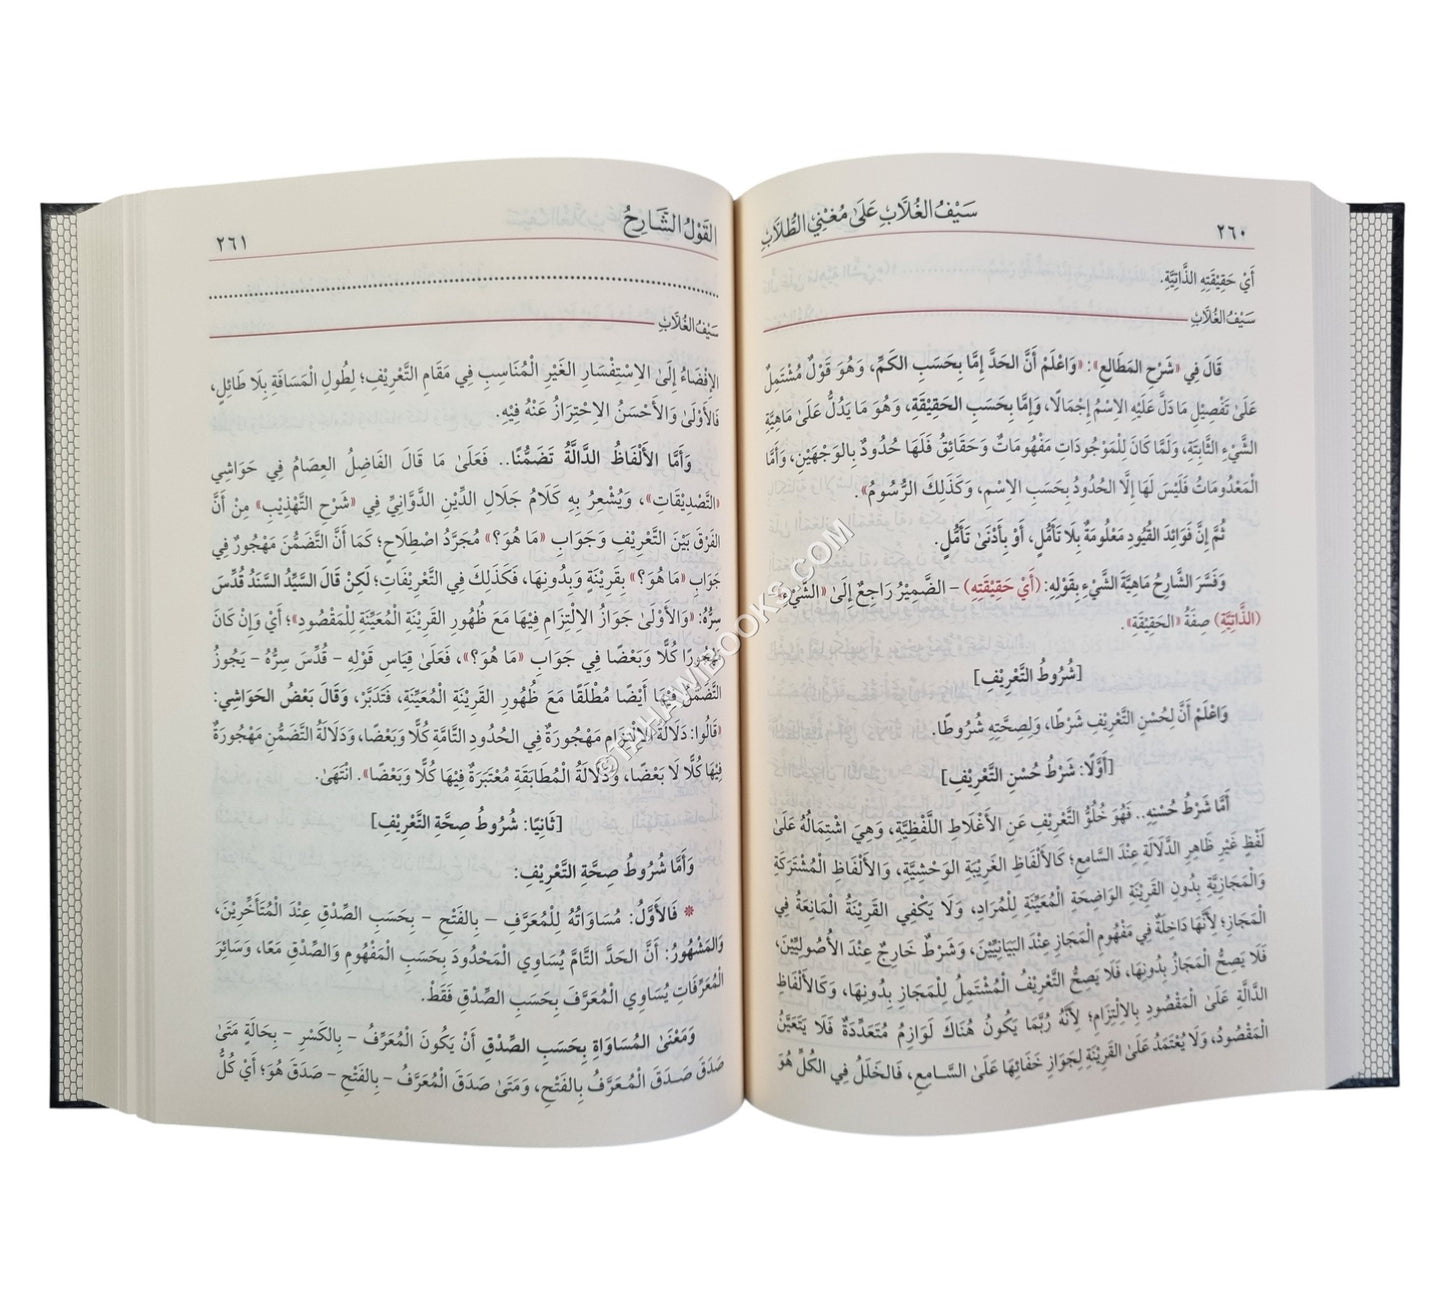 سَيْفُ الغُلَّابِ عَلَىٰ مُغْنِي الطُّلَّابِ
٢٦٠
أَيْ حَقِيْقَتِهِ الذَّاتِيَّةِ.
سَيْفُ الغُلَّابِ
قَالَ فِي «شَرْحِ المَطَالِعِ»: «وَاعْلَمْ أَنَّ الحَدَّ إِمَّا بِحَسَبِ الكَمِّ، وَهُوَ قَوْلٌ مُشْتَمِلٌ
عَلَىٰ تَفْصِيْلِ مَا دَلَّ عَلَيْهِ الاِسْمُ إِجْمَالًا، وَإِمَّا بِحَسَبِ الحَقِيْقَةِ، وَهُوَ مَا يَدُلُّ عَلَىٰ مَاهِيَّةِ
الشَّيْءِ الثَّابِتَةِ، وَلَمَّا كَانَ لِلْمَوْجُودَاتِ مَفْهُومَاتٌ وَحَقَائِقُ فَلَهَا حُدُودٌ بِالوَجْهَيْنِ، وَأَمَّا
المَعْدُومَاتُ فَلَيْسَ لَهَا إِلَّا الحُدُودُ بِحَسَبِ الاِسْمِ، وَكَذَلِكَ الرُّسُومُ».
ثُمَّ إِنَّ فَوَائِدَ القُيُودِ مَعْلُومَةٌ بِلَا تَأَمُّلٍ، أَوْ بِأَدْنَىٰ تَأَمُّلٍ.
وَفَسَّرَ الشَّارِحُ مَاهِيَّةَ الشَّيْءِ بِقَوْلِهِ: (أَيْ حَقِيْقَتِهِ) – الضَّمِيْرُ رَاجِعٌ إِلَىٰ «الشَّيْءِ»
(الذَّاتِيَّةِ) صِفَةُ «الحَقِيْقَةِ».
[شُرُوطُ التَّعْرِيْفِ]
وَاعْلَمْ أَنَّ لِحُسْنِ التَّعْرِيْفِ شَرْطًا، وَلِصِحَّتِهِ شُرُوطًا.
[أَوَّلًا: شَرْطُ حُسْنِ التَّعْرِيْفِ]
أَمَّا شَرْطُ حُسْنِهِ.. فَهُوَ خُلُوُّ التَّعْرِيْفِ عَنِ الأَغْلَاطِ اللَّفْظِيَّةِ، وَهِيَ اشْتِمَالُهُ عَلَىٰ
لَفْظٍ غَيْرِ ظَاهِرِ الدَّلَالَةِ عِنْدَ السَّامِعِ؛ كَالأَلْفَاظِ الغَرِيْبَةِ الوَحْشِيَّةِ، وَالأَلْفَاظِ الْمُشْتَرَكَةِ
وَالْمَجَازِيَّةِ بِدُونِ القَرِيْنَةِ الوَاضِحَةِ الْمُعَيِّنَةِ لِلْمُرَادِ، وَلَا يَكْفِي القَرِيْنَةُ الْمَانِعَةُ فِي
الْمَجَازِ؛ لِأَنَّهَا دَاخِلَةٌ فِي مَفْهُومِ الْمَجَازِ عِنْدَ البَيَانِيِّيْنَ، وَشَرْطٌ خَارِجٌ عِنْدَ الأُصُولِيِّيْنَ،
فَلَا يَصِحُّ الْمَجَازُ بِدُونِهَا، فَلَا يَصِحُّ التَّعْرِيْفُ الْمُشْتَمِلُ لِلْمَجَازِ بِدُونِهَا، وَكَالأَلْفَاظِ
الدَّالَّةِ عَلَىٰ الْمَقْصُودِ بِالاِلْتِزَامِ؛ لِأَنَّهُ رُبَّمَا يَكُونُ هُنَاكَ لَوَازِمُ مُتَعَدِّدَةٌ فَلَا يَتَعَيَّنُ
الْمَقْصُودُ، وَلَا يُعْتَمَدُ عَلَىٰ القَرِيْنَةِ لِجَوَازِ خَفَائِهَا عَلَىٰ السَّامِعِ، فَالخَلَلُ فِي الكُلِّ هُوَ
القَوْلُ الشَّارِحُ
٢٦١
سَيْفُ الغُلَّابِ
الإِفْضَاءُ إِلَىٰ الاِسْتِفْسَارِ الغَيْرِ الْمُنَاسِبِ فِي مَقَامِ التَّعْرِيْفِ؛ لِطُولِ الْمَسَافَةِ بِلَا طَائِلٍ،
فَالأَوْلَىٰ وَالأَحْسَنُ الاِحْتِرَازُ عَنْهُ فِيْهِ.
وَأَمَّا الأَلْفَاظُ الدَّالَّةُ تَضَمُّنًا.. فَعَلَىٰ مَا قَالَ الفَاضِلُ العِصَامُ فِي حَوَاشِي
«التَّصْدِيْقَاتِ»، وَيُشْعِرُ بِهِ كَلَامُ جَلَالِ الدِّيْنِ الدَّوَّانِيِّ فِي «شَرْحِ التَّهْذِيْبِ» مِنْ أَنَّ
الفَرْقَ بَيْنَ التَّعْرِيْفِ وَجَوَابِ «مَا هُوَ؟» مُجَرَّدُ اصْطِلَاحٍ؛ كَمَا أَنَّ التَّضَمُّنَ مَهْجُورٌ فِي
جَوَابِ «مَا هُوَ؟» بِقَرِيْنَةٍ وَبِدُونِهَا، فَكَذَلِكَ فِي التَّعْرِيْفَاتِ؛ لَكِنْ قَالَ السَّيِّدُ السَّنَدُ قُدِّسَ
سِرُّهُ: «وَالأَوْلَىٰ جَوَازُ الاِلْتِزَامِ فِيْهَا مَعَ ظُهُورِ القَرِيْنَةِ الْمُعَيِّنَةِ لِلْمَقْصُودِ»؛ أَيْ وَإِنْ كَانَ
مَهْجُورًا كُلًّا وَبَعْضًا فِي جَوَابِ «مَا هُوَ؟»، فَعَلَىٰ قِيَاسِ قَوْلِهِ – قُدِّسَ سِرُّهُ – يَجُوزُ
التَّضَمُّنُ فِيْهَا أَيْضًا مُطْلَقًا مَعَ ظُهُورِ القَرِيْنَةِ الْمُعَيِّنَةِ، فَتَدَبَّرْ، وَقَالَ بَعْضُ الحَوَاشِي:
«قَالُوا: دَلَالَةُ الاِلْتِزَامِ مَهْجُورَةٌ فِي الحُدُودِ التَّامَّةِ كُلًّا وَبَعْضًا، وَدَلَالَةُ التَّضَمُّنِ مَهْجُورَةٌ
فِيْهَا كُلًّا لَا بَعْضًا، وَدَلَالَةُ الْمُطَابَقَةِ مُعْتَبَرَةٌ فِيْهَا كُلًّا وَبَعْضًا». انْتَهَىٰ.
[ثَانِيًا: شُرُوطُ صِحَّةِ التَّعْرِيْفِ]
وَأَمَّا شُرُوطُ صِحَّةِ التَّعْرِيْفِ:
* فَالأَوَّلُ: مُسَاوَاتُهُ لِلْمُعَرَّفِ – بِالفَتْحِ – بِحَسَبِ الصِّدْقِ عِنْدَ الْمُتَأَخِّرِيْنَ،
وَالمَشْهُورُ: أَنَّ الحَدَّ التَّامَّ يُسَاوِي الْمَحْدُودَ بِحَسَبِ الْمَفْهُومِ وَالصِّدْقِ مَعًا، وَسَائِرَ
الْمُعَرِّفَاتِ يُسَاوِي الْمُعَرَّفَ بِحَسَبِ الصِّدْقِ فَقَطْ.
وَمَعْنَىٰ المُسَاوَاةِ بِحَسَبِ الصِّدْقِ أَنْ يَكُونَ الْمُعَرِّفُ – بِالكَسْرِ – بِحَالَةٍ مَتَىٰ
صَدَقَ صَدَقَ الْمُعَرَّفُ بِالفَتْحِ، وَمَتَىٰ صَدَقَ الْمُعَرَّفُ – بِالفَتْحِ – صَدَقَ هُوَ؛ أَيْ كُلُّ
©TAHAWIBOOKS.COM